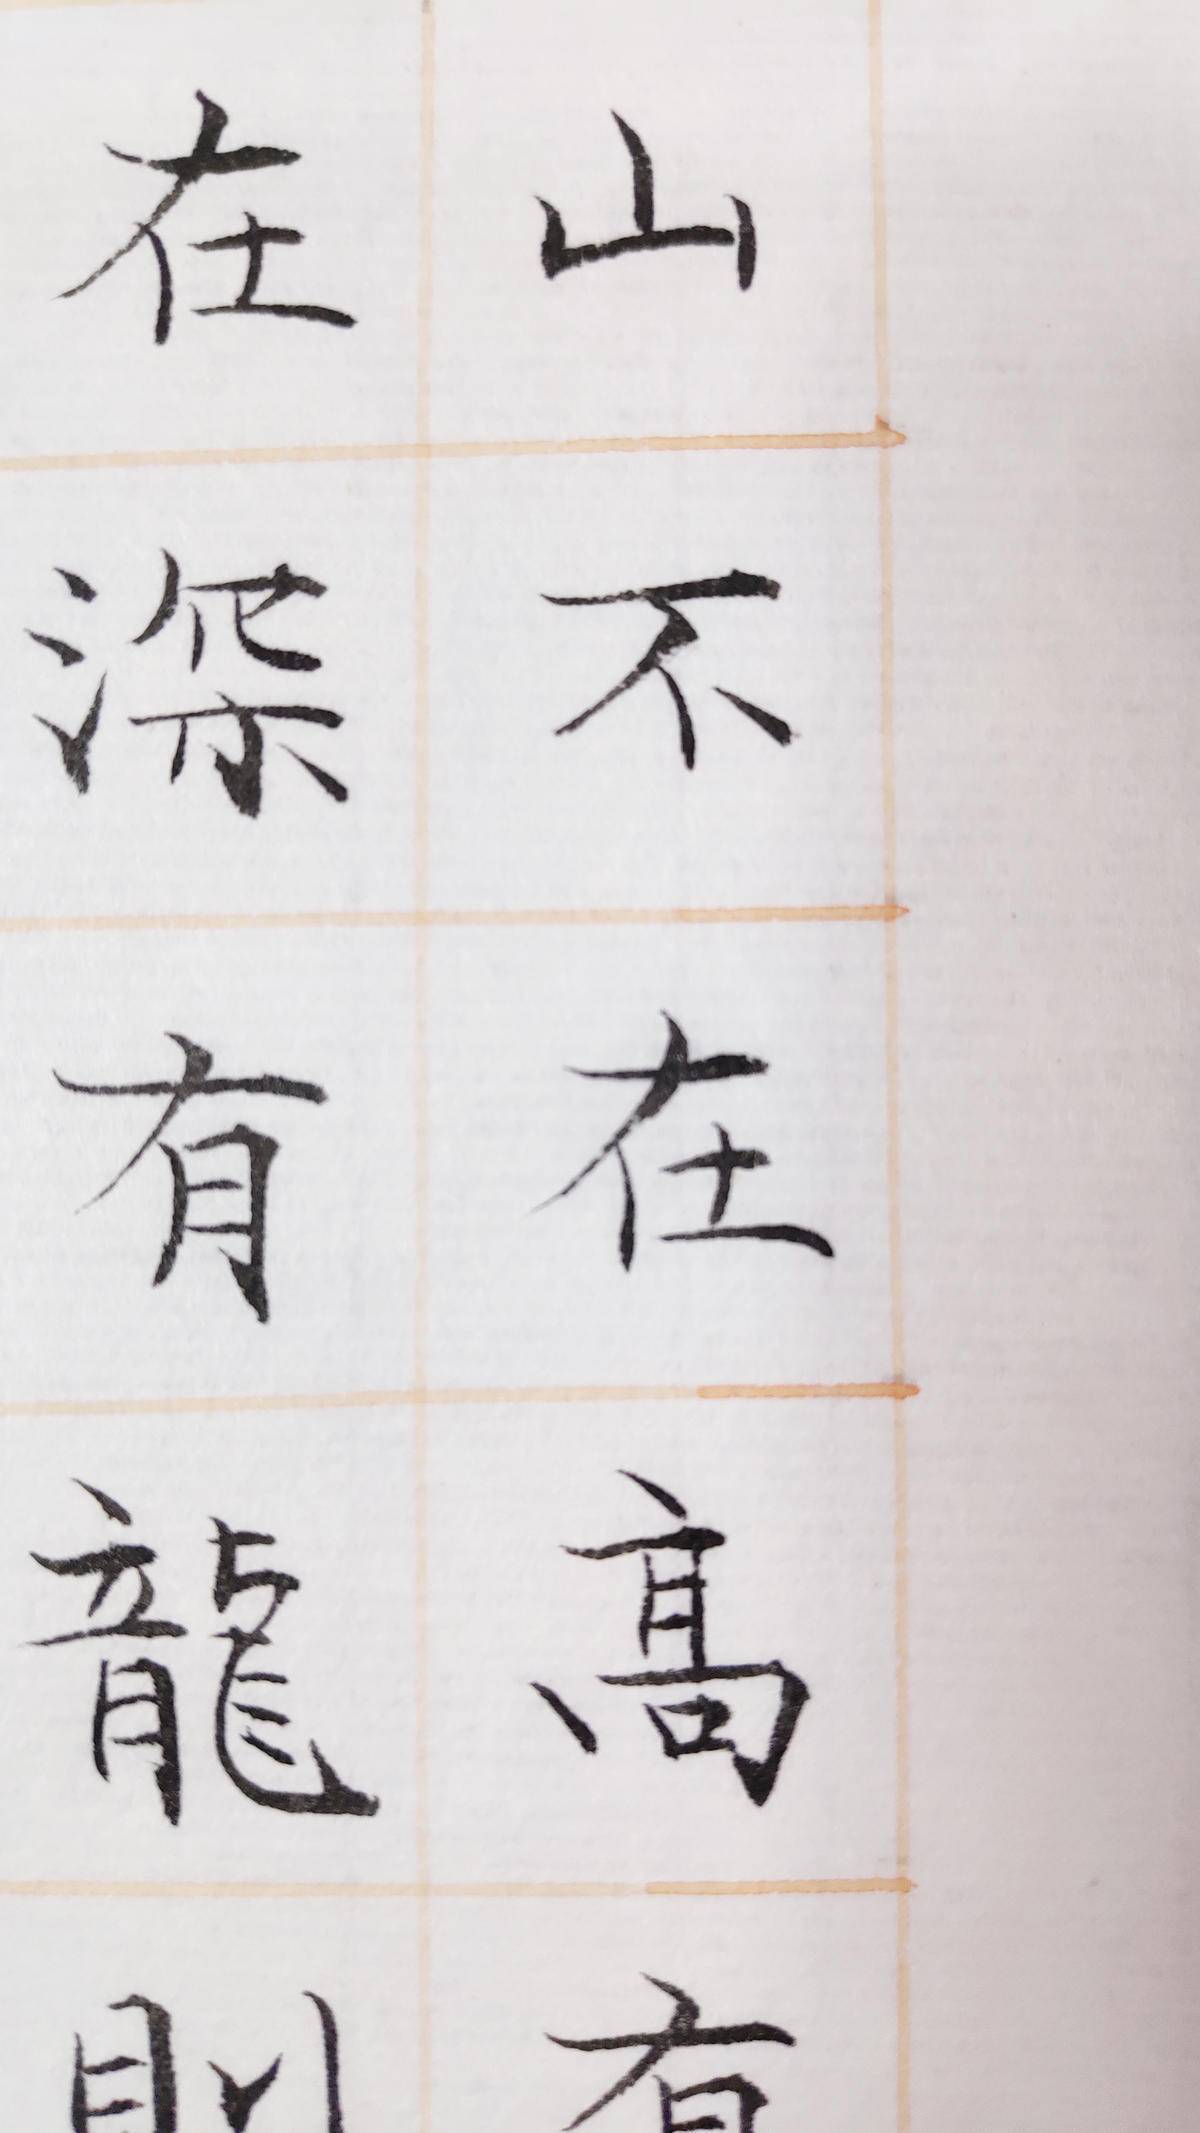 山不在高有
在深有龍則